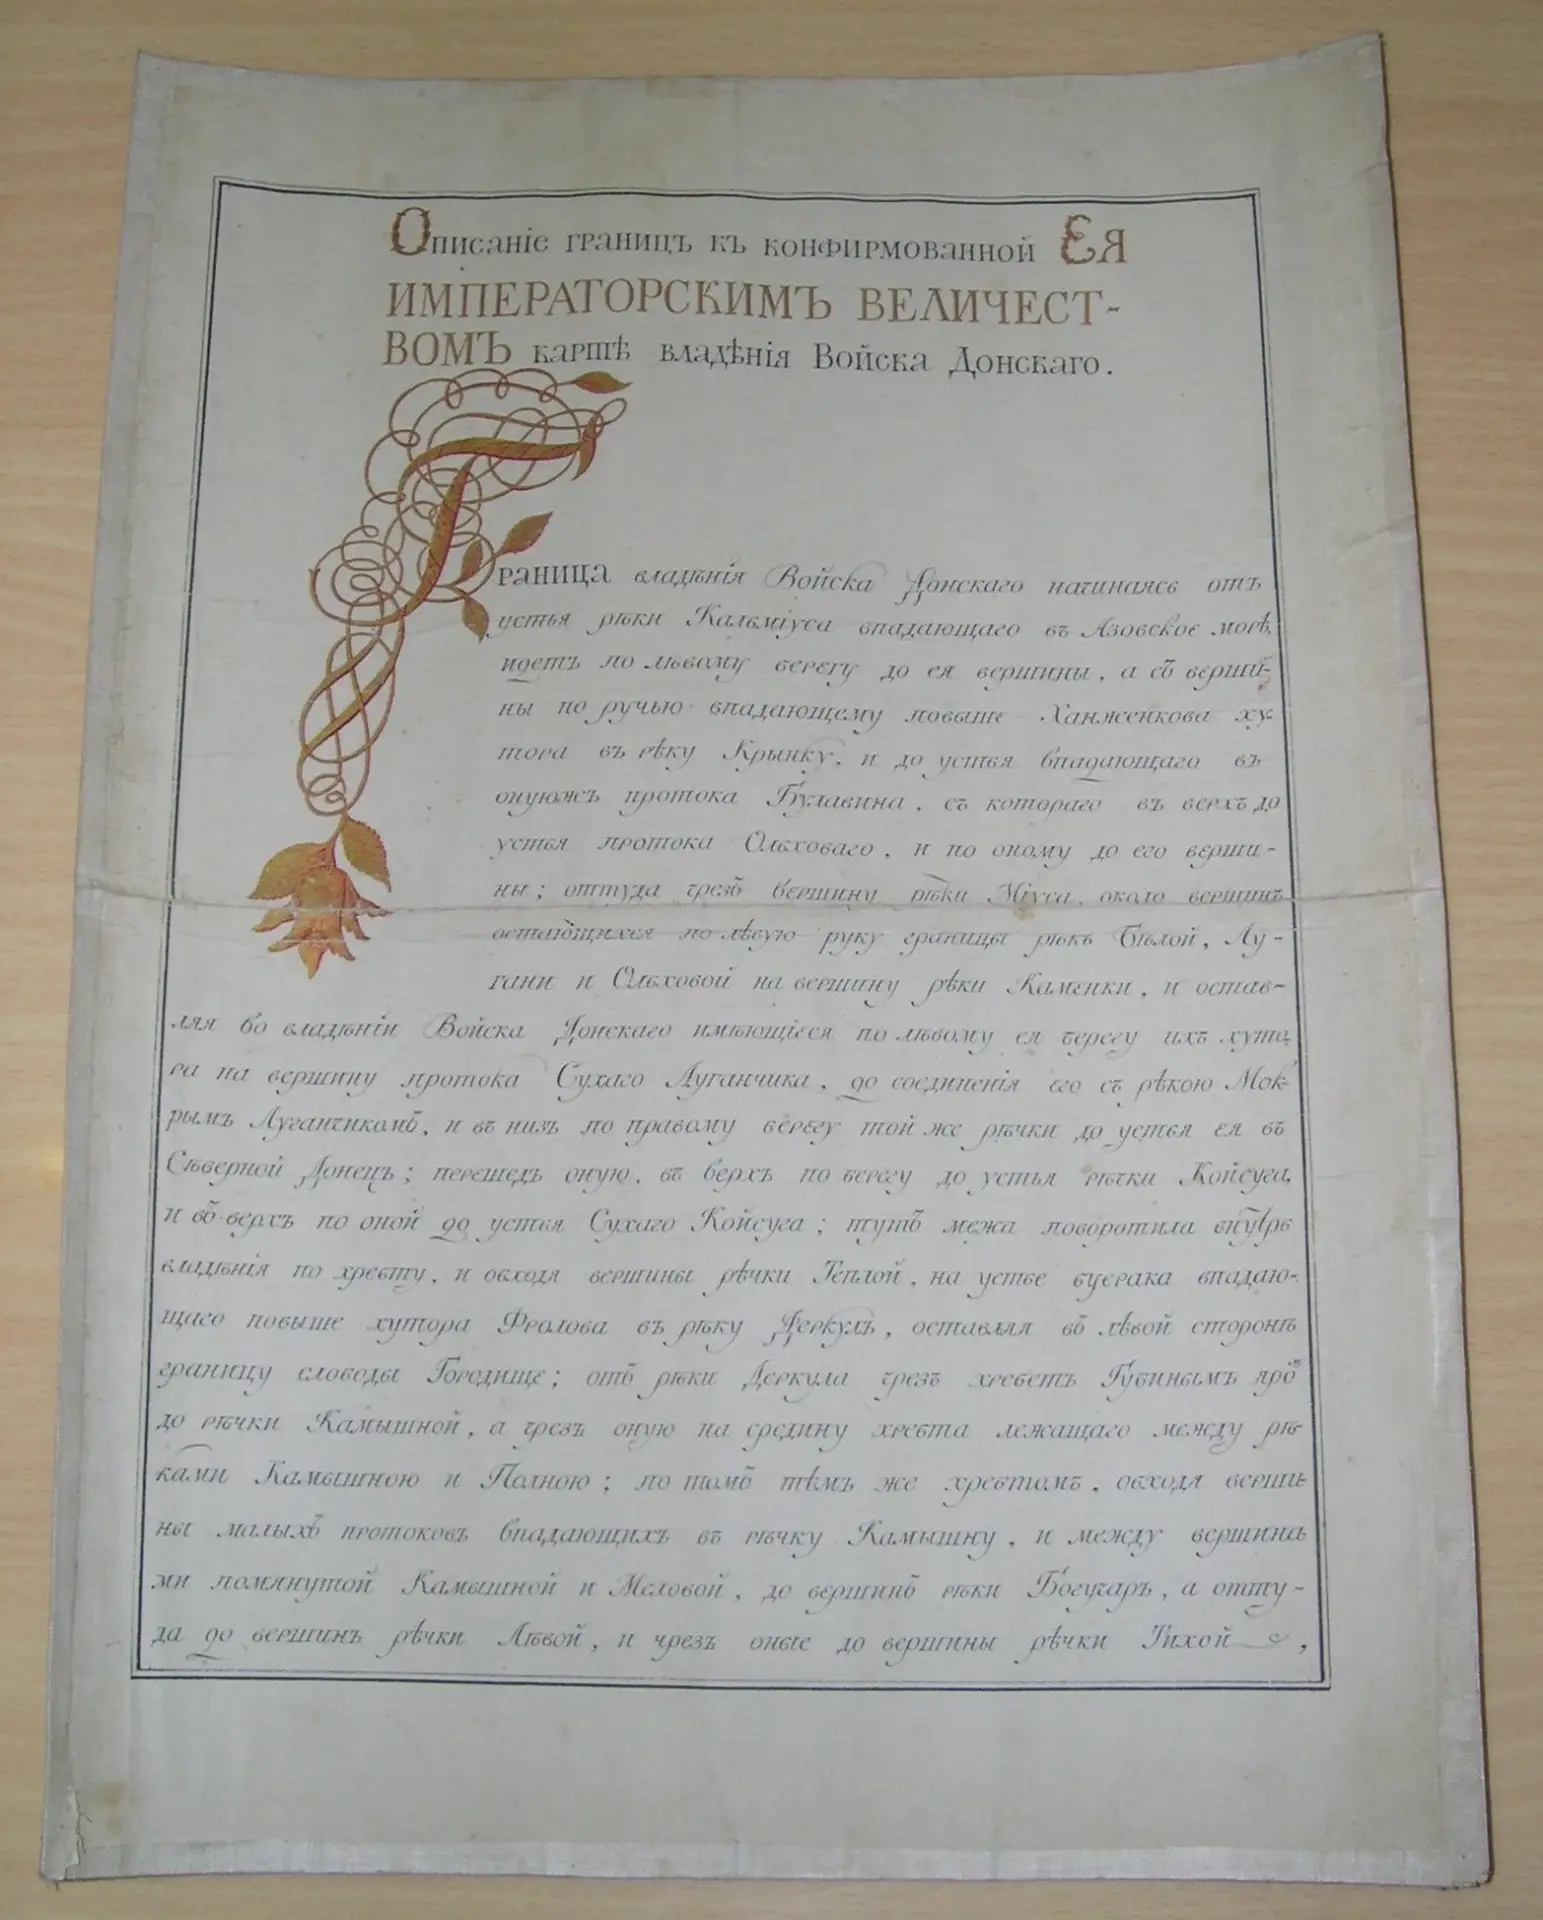 Описаніе границъ къ конфирмованной ЕЯ
ИМПЕРАТОРСКИМЪ ВЕЛИЧЕСТ-
ВОМЪ картѣ владѣнія Войска Донскаго.
ГРАНИЦА владѣнія Войска Донскаго начинаясь отъ
устья рѣки Кальміуса впадающаго въ Азовское морѣ,
идетъ по лѣвому берегу до ея вершины, а съ верши-
ны по ручью впадающему повыше Ханженкова ху-
тора въ рѣку Крынку, и до устья впадающаго въ
онуюжъ протока Булавина, съ котораго въ верхъ до
устья протока Ольховаго, и по оному до его верши-
ны; оттуда чрезъ вершину рѣки Міуса, около вершинъ
остающихся по лѣвую руку границы рѣкъ Бѣлой, Лу-
гани и Ольховой на вершину рѣки Каменки, и остав-
ляя во владѣніи Войска Донскаго имѣющіеся по лѣвому ея берегу ихъ хуто-
ра на вершину протока Сухаго Луганчика, до соединенія его съ рѣкою Мок-
рымъ Луганчикомъ, и въ низъ по правому берегу той же рѣчки до устья ея въ
Сѣверной Донецъ; перешедъ оную, въ верхъ по берегу до устья рѣчки Койсуга,
и въ верхъ по оной до устья Сухаго Койсуга; тутъ межа поворотила внутрь
владѣнія по хребту, и обходя вершины рѣчки Теплой, на устье буерака впадаю-
щаго повыше хутора Фролова въ рѣку Деркулъ, оставляя въ лѣвой сторонѣ
границу слободы Городище; отъ рѣки Деркула чрезъ хребетъ Губинымъ яро
до рѣчки Камышной, а чрезъ оную на средину хребта лежащаго между рѣ-
ками Камышною и Полною; по томъ тѣмъ же хребтомъ, обходя верши-
ны малыхъ протоковъ впадающихъ въ рѣчку Камышну, и между вершина
ми помянутой Камышной и Меловой, до вершинъ рѣки Богучаръ, а отту-
да до вершинъ рѣчки Лѣвой, и чрезъ оные до вершины рѣчки Тихой,